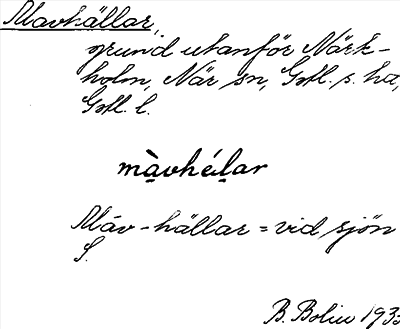 Mavhällar,
grund utanför Närk-
holm, När sn, Gotl. s. hd,
Gotl. l.
màvhélar
Máv-hällar = vid sjön
S.
B. Bolin 1933